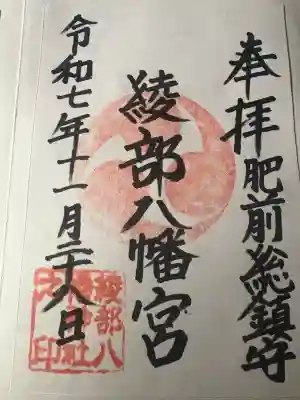 奉拝
肥前総鎮守
綾部八幡宮
令和七年十一月二十八日
綾部八
幡神社
之印